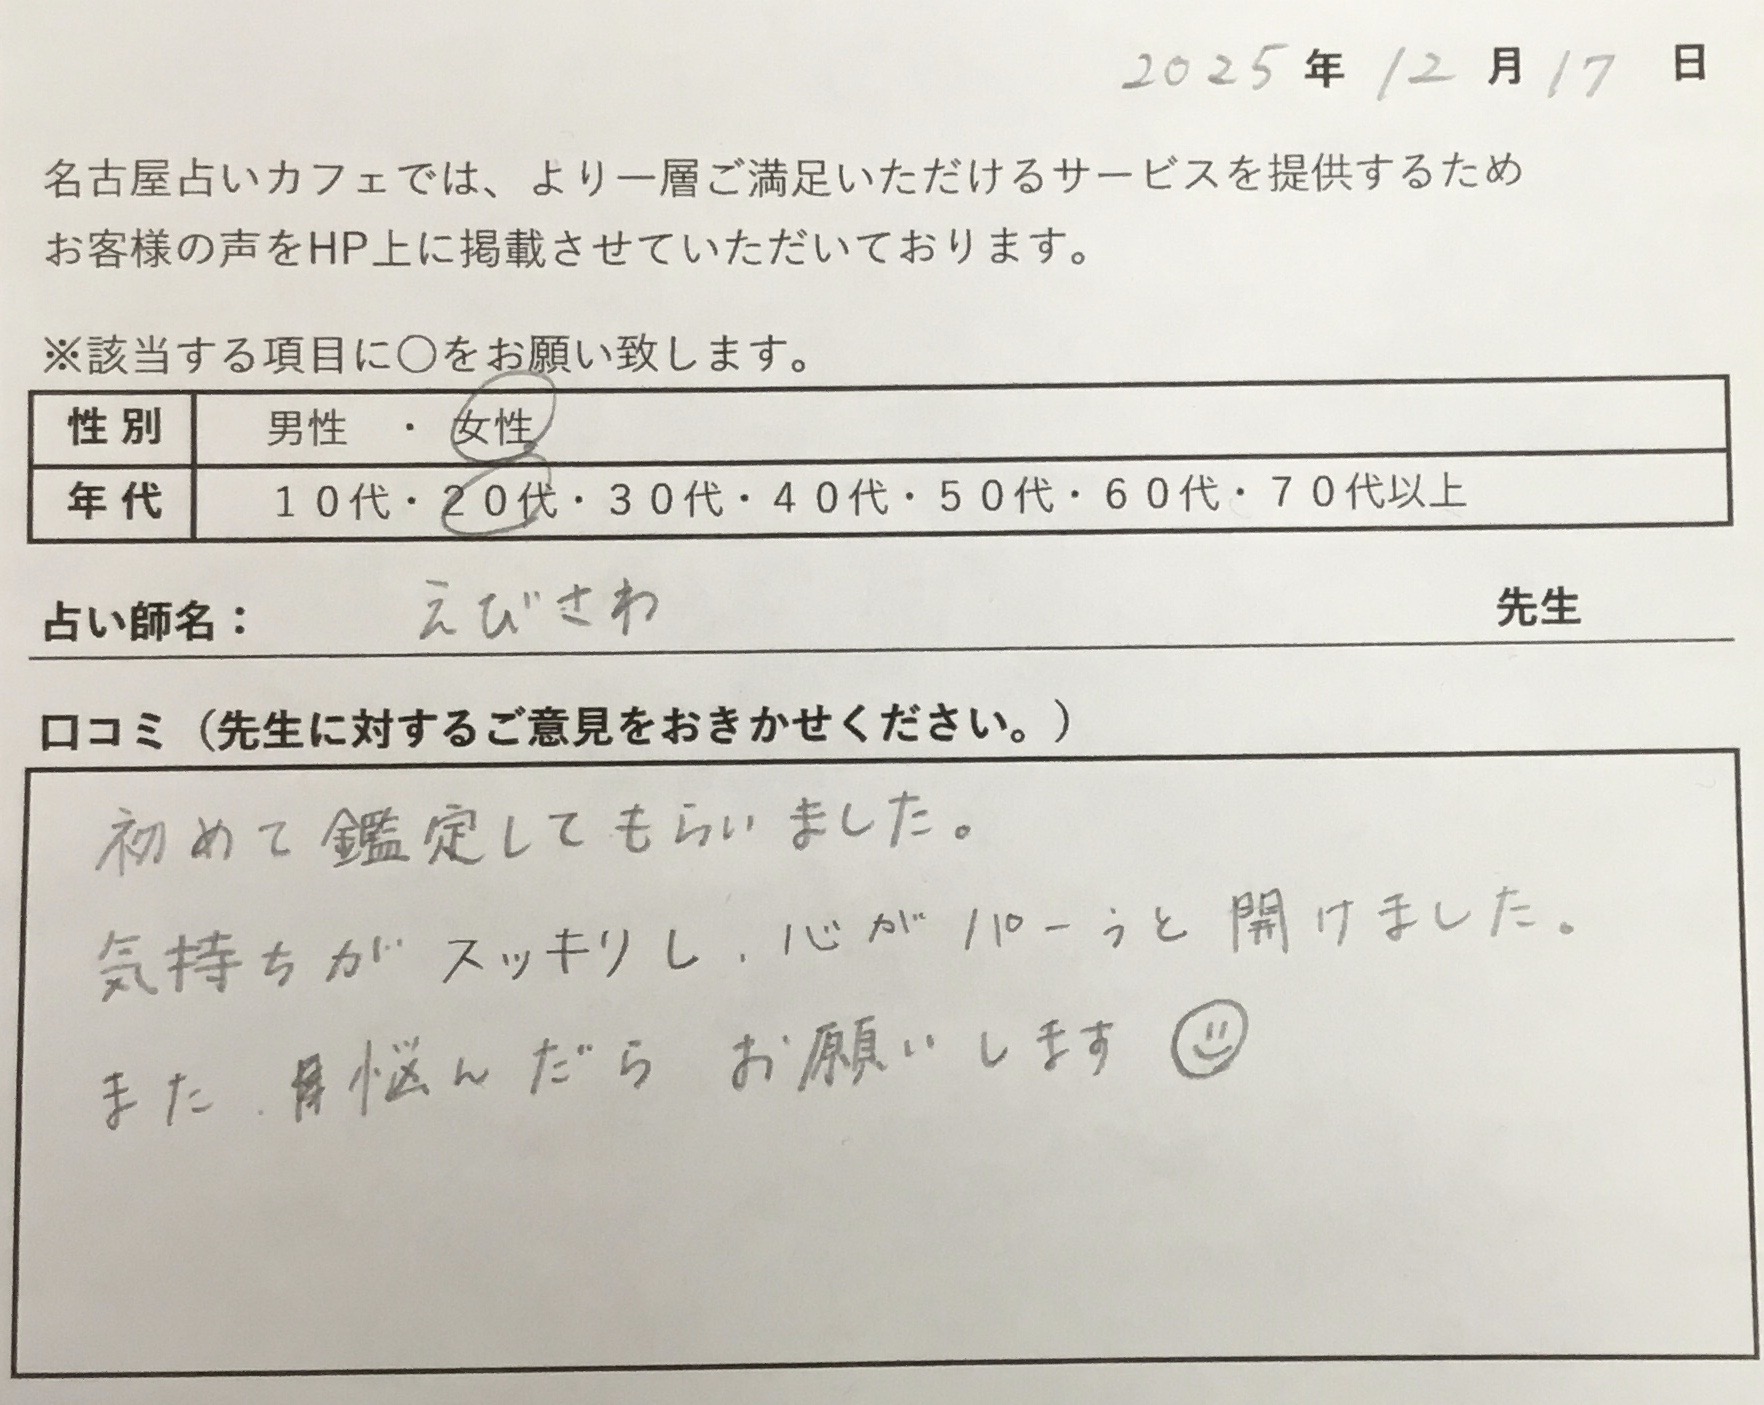 2025年12月17日
名古屋占いカフェでは、より一層ご満足いただけるサービスを提供するため
お客様の声をHP上に掲載させていただいております。
※該当する項目に〇をお願い致します。
性別 男性 ・ 女性
年代 10代・20代・30代・40代・50代・60代・70代以上
占い師名： えびさわ 先生
口コミ（先生に対するご意見をおきかせください。）
初めて鑑定してもらいました。
気持ちがスッキリし、心がパーぅと開けました。
また、悩んだらお願いします